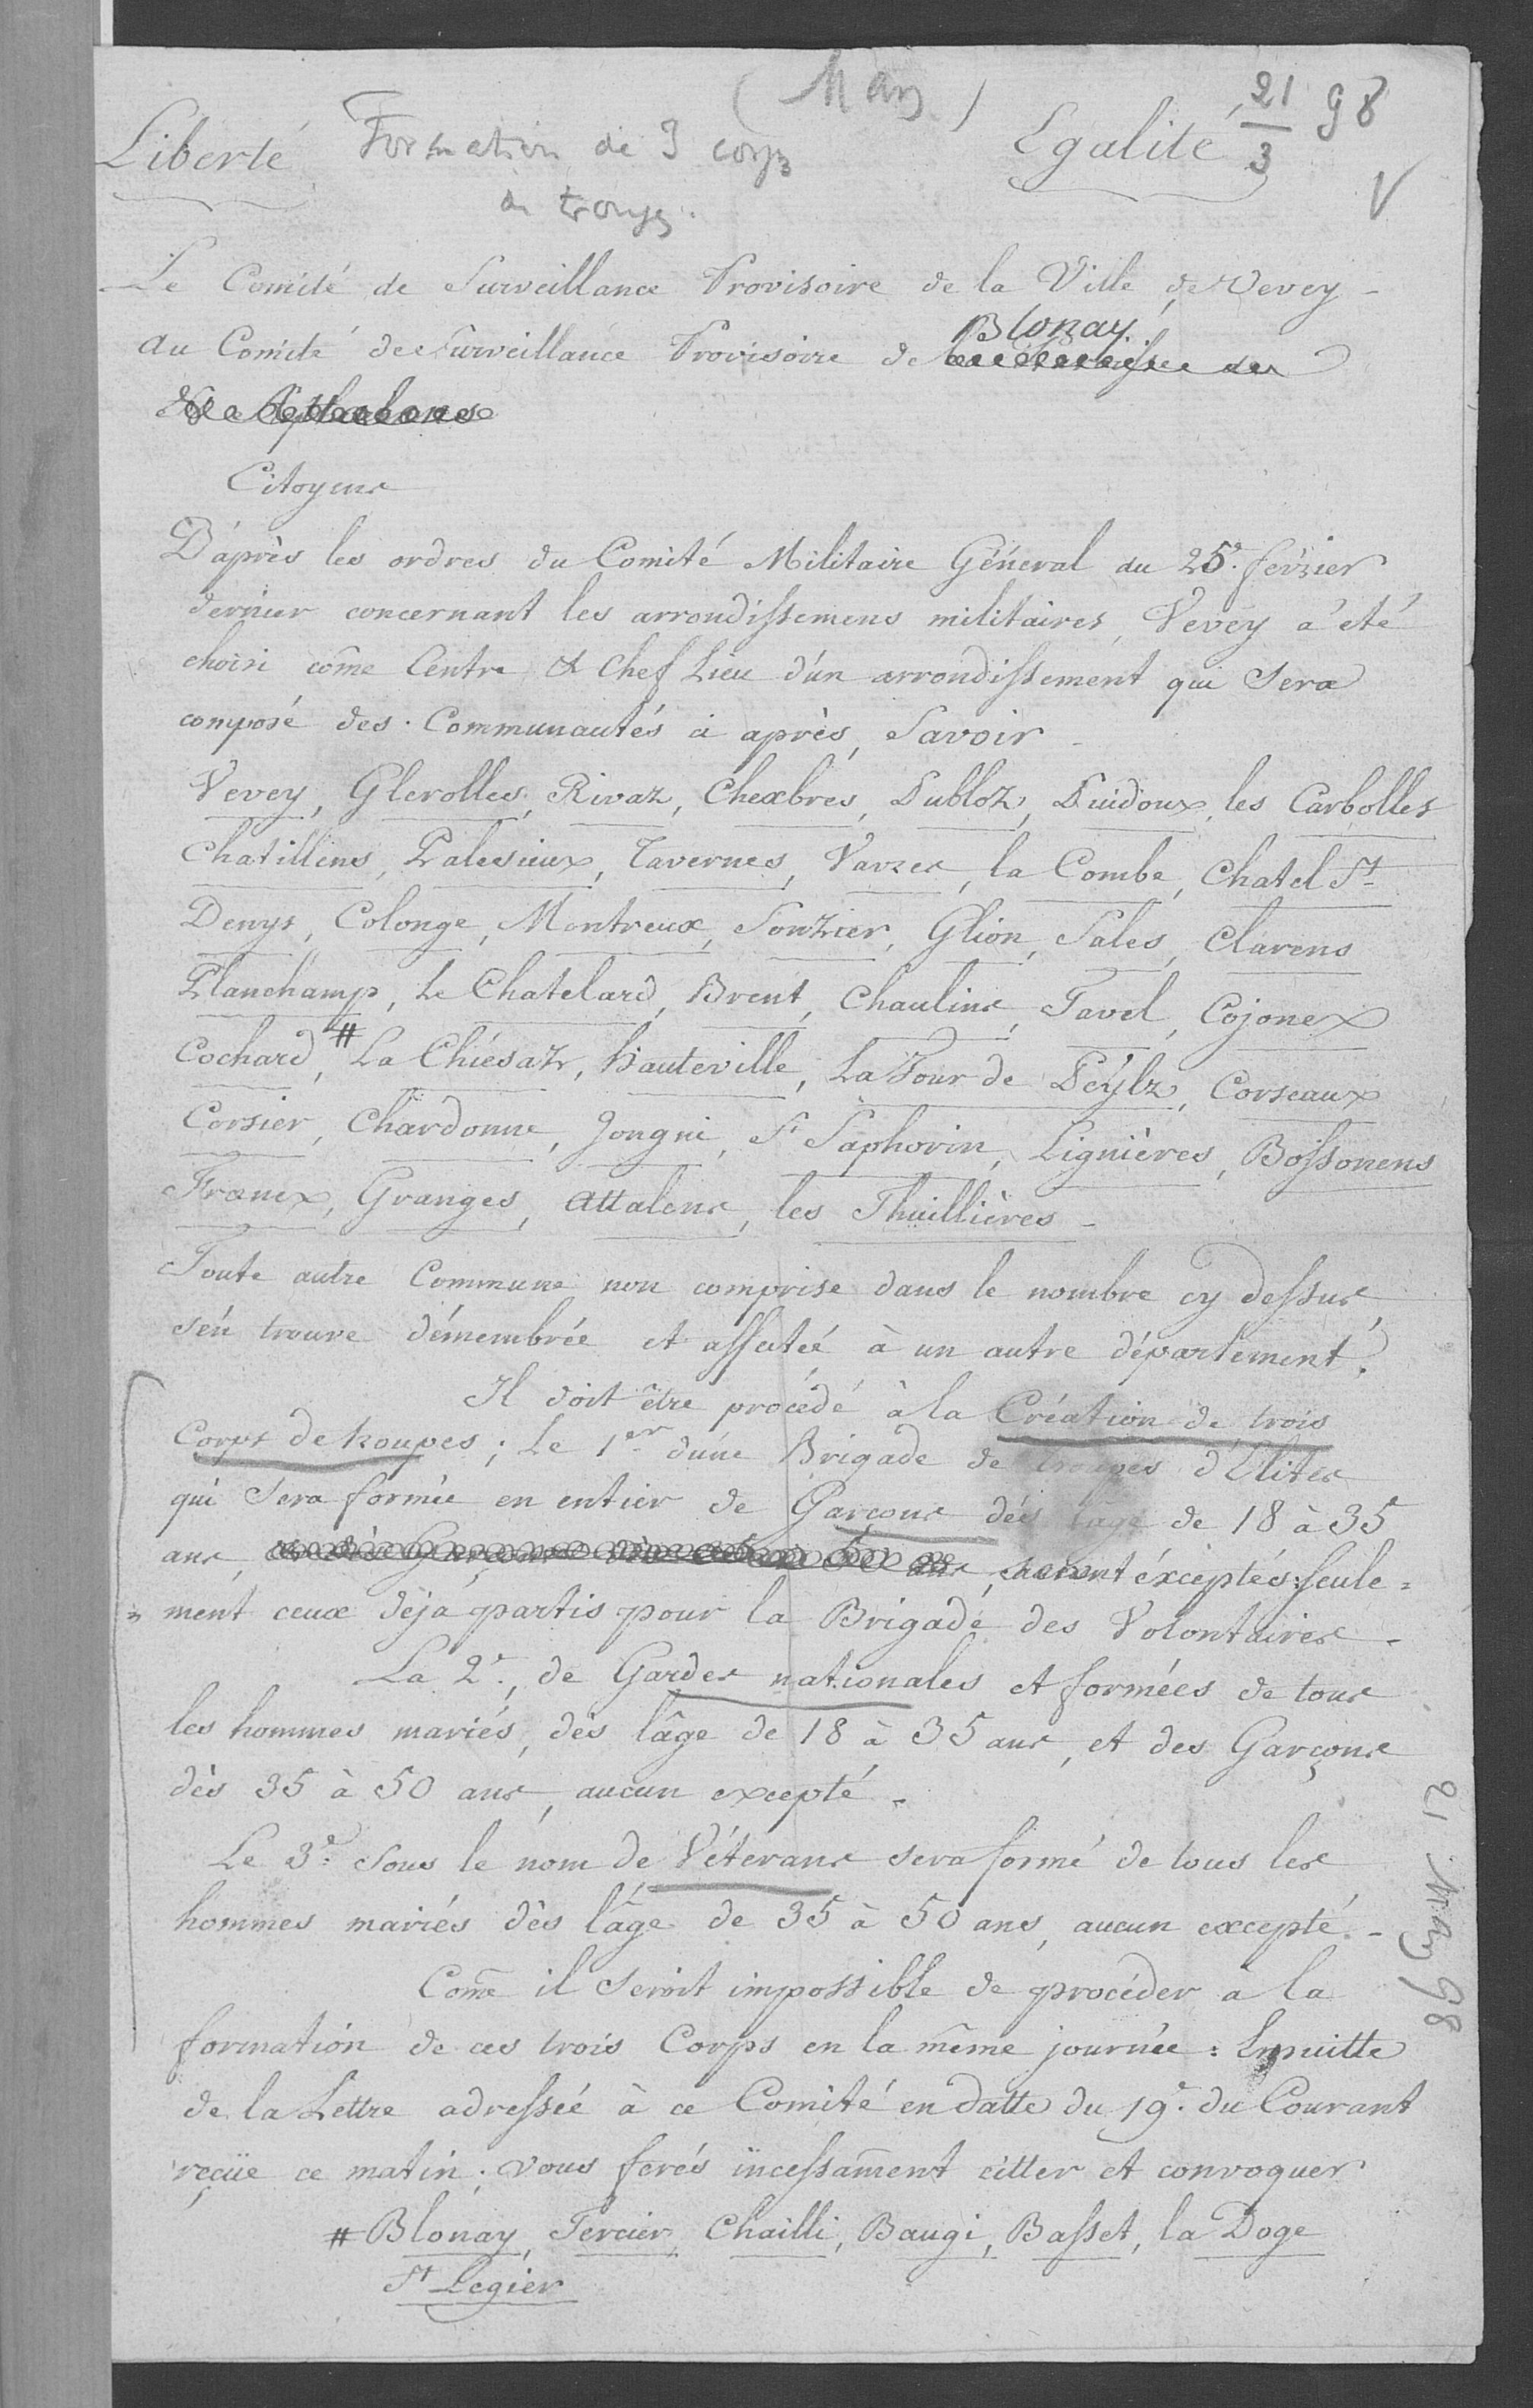 ( Mars ) 21/3 98
Liberté Egalité
Formation de 3 corps
de troupes.
V
Le Comité de Surveillance Provisoire de la Ville de Vevey -
Au Comité de Surveillance Provisoire de Blonay.
Citoyens
D'après les ordres du Comité Militaire Général du 25e. février
dernier concernant les arrondissemens militaires, Vevey a été
choisi come Centre & Chef Lieu d'un arrondissement qui sera
composé des Communautés ci après, Savoir -
Vevey, Glerolles, Rivaz, Chexbres, Publoz, Puidoux, les Carbolles
Chatillens, Palesieux, Tavernes, Varzes, la Combe, Chatel St-
Denys, Colonge, Montreux, Sonzier, Glion, Sales, Clarens
Planchamp, Le Chatelard, Brent, Chaulins, Tavel, Cojonex
Cochard, # La Chiésaz, Hauteville, La Tour de Peylz, Corseaux
Corsier, Chardonne, Jongni, St Saphorin, Lignières, Bossonens
Franex, Granges, Attalens, les Thuillières -
Toute autre Commune non comprise dans le nombre cy dessus
s'en trouve démembrée et affectée à un autre département.
Il doit être procédé à la Création de trois
Corps de troupes; Le 1er d'une Brigade de troupes d'Elites
qui sera formée en entier de Garçons dés l'age de 18 à 35
ans, seront éxceptés: seule=
ment ceux déjà partis pour la Brigade des Volontaires -
La 2e., de Gardes nationales et formées de tous
les hommes mariés, dès l'âge de 18 à 35 ans, et des Garçons
dès 35 à 50 ans, aucun excepté -
Le 3e. Sous le nom de Vétérans sera formé de tous les
hommes mariés dès l'âge de 35 à 50 ans, aucun excepté -
Come il seroit impossible de procéder a la
formation de ces trois Corps en la même journée: Ensuitte
de la Lettre adressée à ce Comité en datte du 19e. du Courant
reçüe ce matin; vous ferés incessament citter et convoquer
# Blonay, Tercier, Chailli, Baugi, Basset, la Doge
St Legier
21 Mars 98